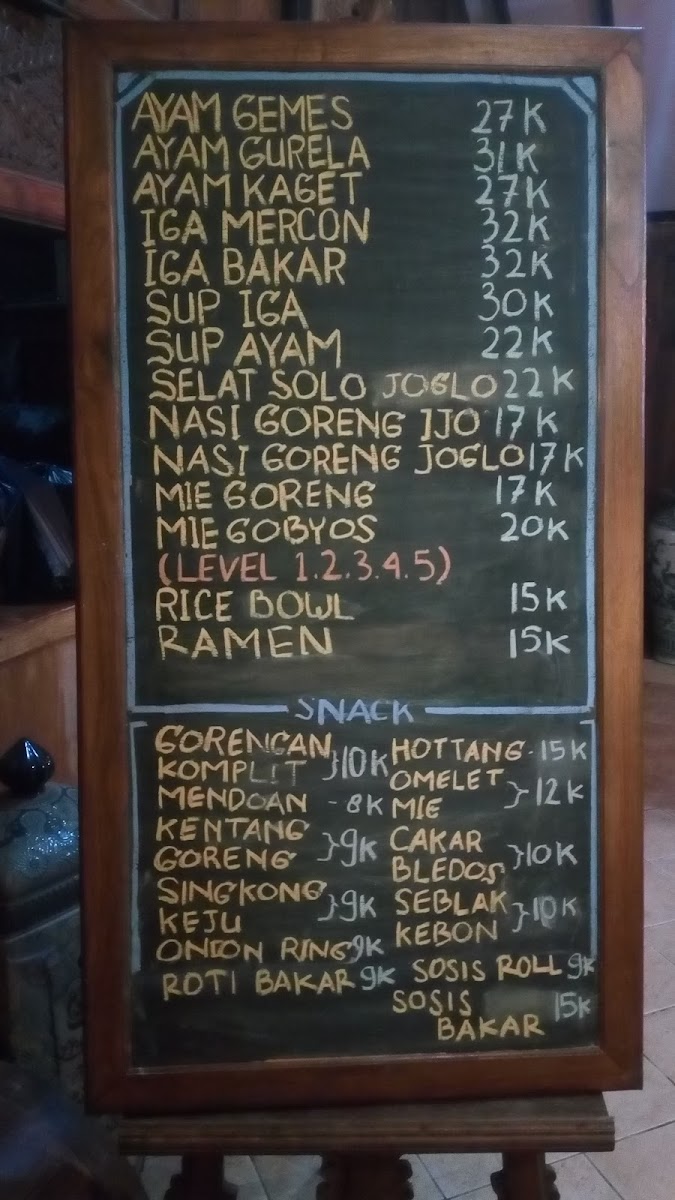 AYAM GEMES 27K
AYAM GURELA 31K
AYAM KAGET 27K
IGA MERCON 32K
IGA BAKAR 32K
SUP IGA 30K
SUP AYAM 22K
SELAT SOLO JOGLO 22K
NASI GORENG IJO 17K
NASI GORENG JOGLO 17K
MIE GORENG 17K
MIE GOBYOS 20K
(LEVEL 1.2.3.4.5)
RICE BOWL 15K
RAMEN 15K
SNACK
GORENGAN
KOMPLIT }10K
MENDOAN - 8K
KENTANG
GORENG }9K
SINGKONG
KEJU }9K
ONION RING 9K
ROTI BAKAR 9K
HOTTANG - 15K
OMELET
MIE }12K
CAKAR
BLEDOS }10K
SEBLAK
KEBON }10K
SOSIS ROLL 9K
SOSIS 15K
BAKAR